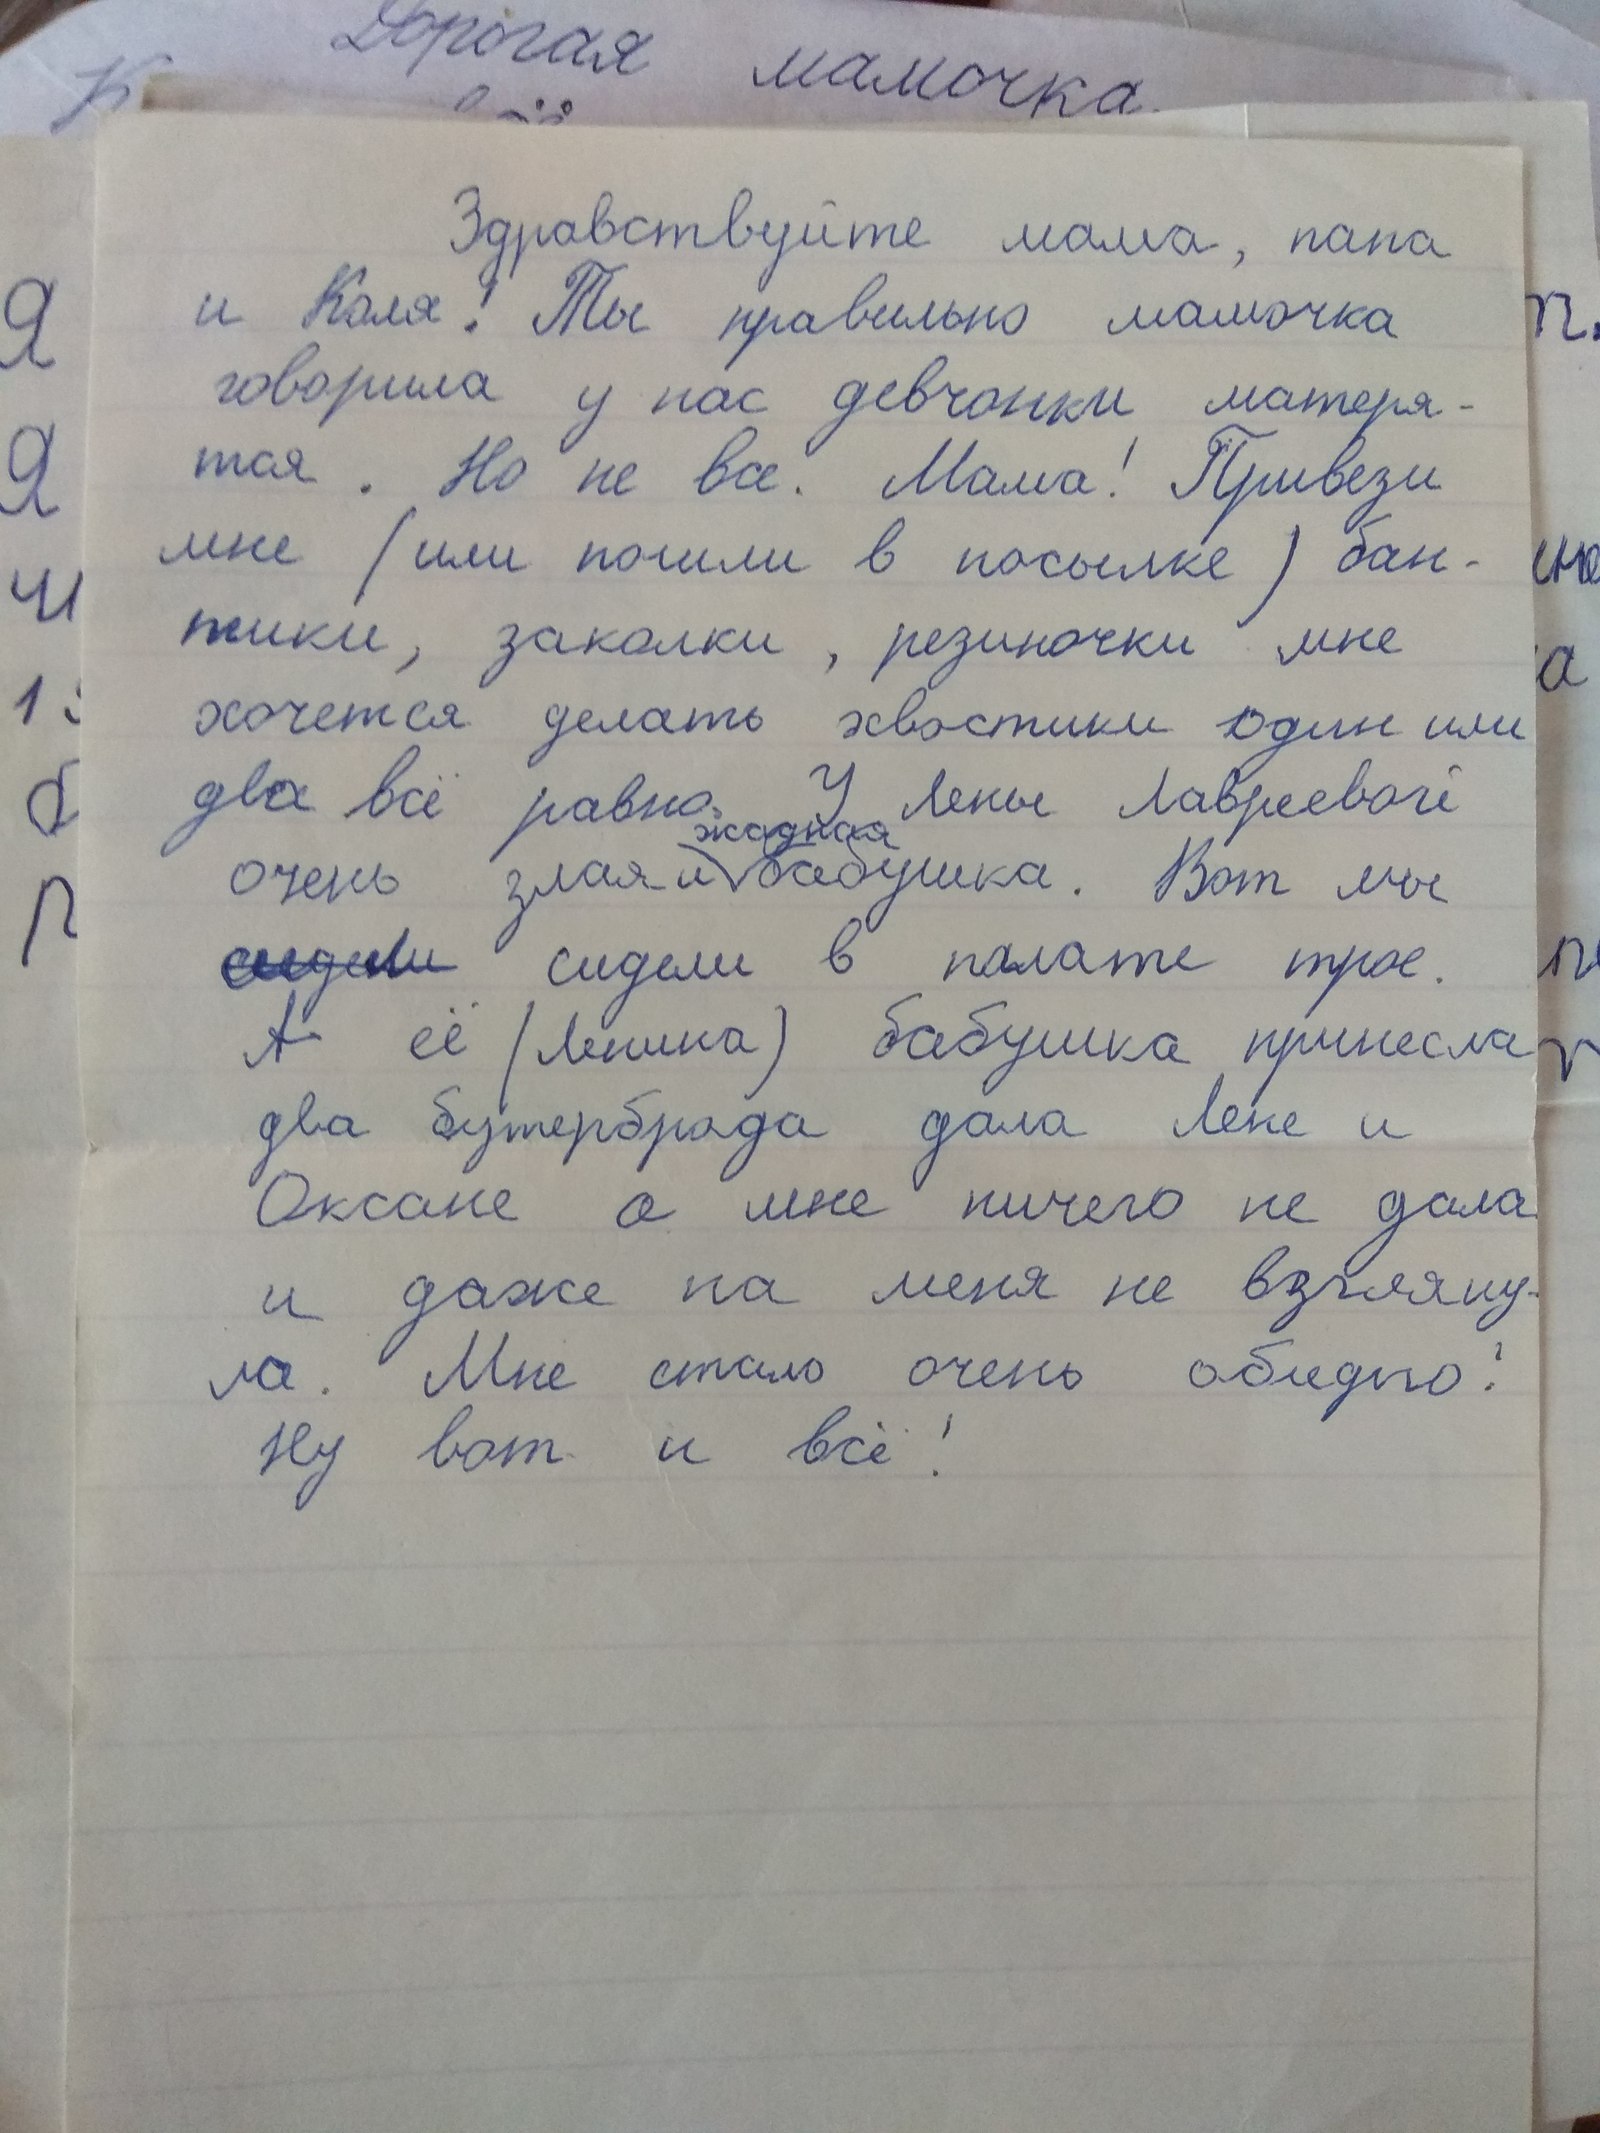 Дорогая мамочка.
Здравствуйте мама, папа
и Коля! Ты правильно мамочка
говорила у нас девчонки матеря-
тся. Но не все. Мама! Привези
мне (или пошли в посылке) бан-
тики, заколки, резиночки мне
хочется делать хвостики один или
два всё равно. У Лены Лавреевой
жадная
очень злая и бабушка. Вот мы
сидели сидели в палате трое.
А её (Ленина) бабушка принесла
два бутерброда дала Лене и
Оксане а мне ничего не дала
и даже на меня не взгляну-
ла. Мне стало очень обидно!
Ну вот и всё!